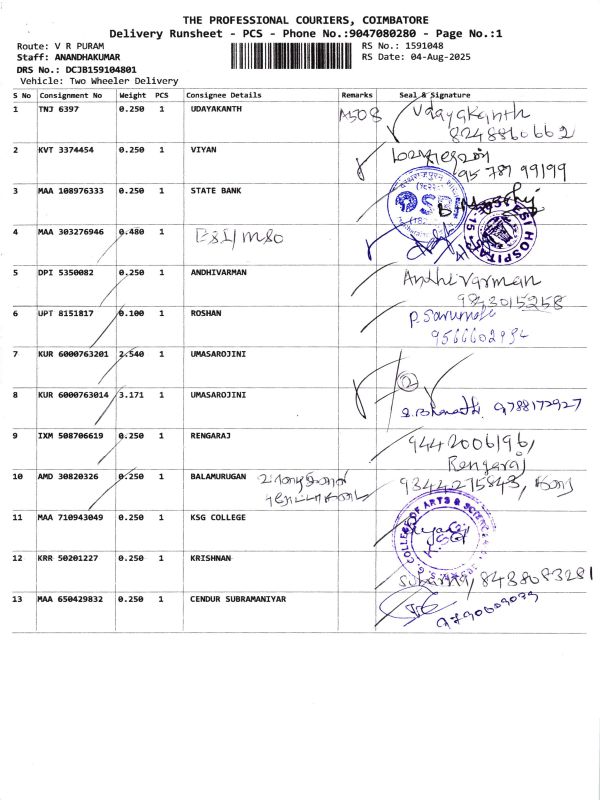 THE PROFESSIONAL COURIERS, COIMBATORE
Delivery Runsheet - PCS - Phone No.:9047080280 - Page No.:1
Route: V R PURAM
RS No.: 1591048
Staff: ANANDHAKUMAR
RS Date: 04-Aug-2025
DRS No.: DCJB159104801
Vehicle: Two Wheeler Delivery
S No Consignment No Weight PCS Consignee Details Remarks Seal & Signature
1 TNJ 6397 0.250 1 UDAYAKANTH A508 Udayakanth
8248860662
2 KVT 3374454 0.250 1 VIYAN
95789 99199
3 MAA 108976333 0.250 1 STATE BANK
4 MAA 303276946 0.480 1 ESI/MSO
ESI HOSPITAL
5 DPI 5350082 0.250 1 ANDHIVARMAN Andhivarman
9843015258
6 UPT 8151817 0.100 1 ROSHAN
9566602934
7 KUR 6000763201 2.540 1 UMASAROJINI 2
8 KUR 6000763014 3.171 1 UMASAROJINI S. Bharathi. 9788172927
9 IXM 508706619 0.250 1 RENGARAJ 9442006196,
Rengaraj
10 AMD 30820326 0.250 1 BALAMURUGAN 9344275843,
11 MAA 710943049 0.250 1 KSG COLLEGE
COLLEGE OF ARTS & SCIENCE
12 KRR 50201227 0.250 1 KRISHNAN 8438083281
13 MAA 650429832 0.250 1 CENDUR SUBRAMANIYAR